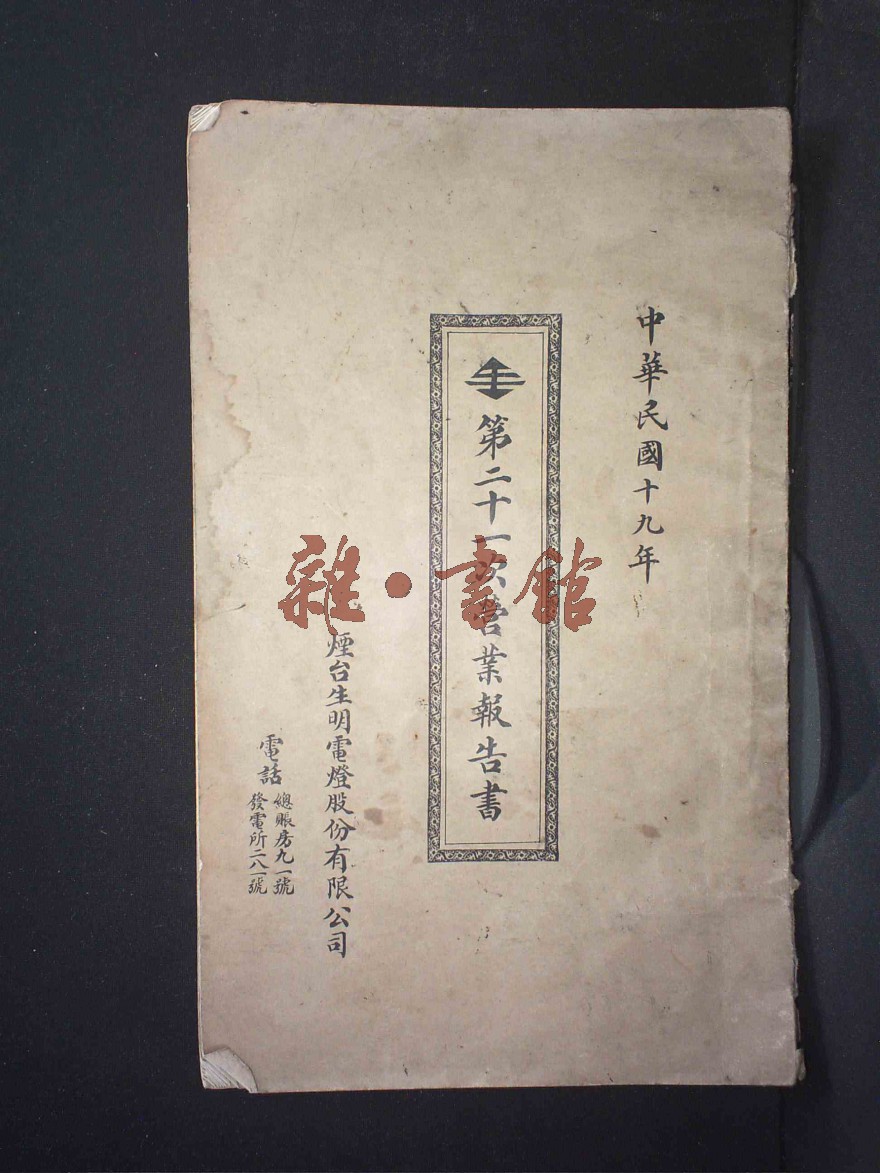 中華民國十九年
第二十一次營業報告書
煙台生明電燈股份有限公司
電話
總賬房九一號
發電所二八一號
雜·書館